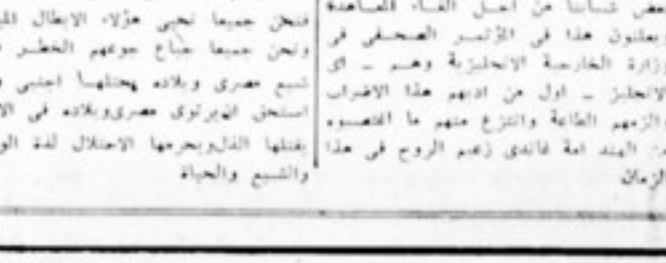 بعض شبابنا من اجل الغاء المعاهدة
ويعلنون هذا في المؤتمر الصحفى فى
وزارة الخارجية الانجليزية وهم ــ اى
الانجليز ــ اول من ادبهم هذا الاضراب
والزمهم الطاعة وانتزع منهم ما اغتصبوه
من الهند امة غاندى زعيم الروح فى هذا
الزمان
فنحن جميعا نحيى هؤلاء الابطال
ونحن جميعا جياع جوعهم الخطر
شبع مصرى وبلاده يحتلها اجنبى
استحق ان يرتوى مصرى وبلاده فى
يقتلها الذل ويحرمها الاحتلال لذة
والشبع والحياة